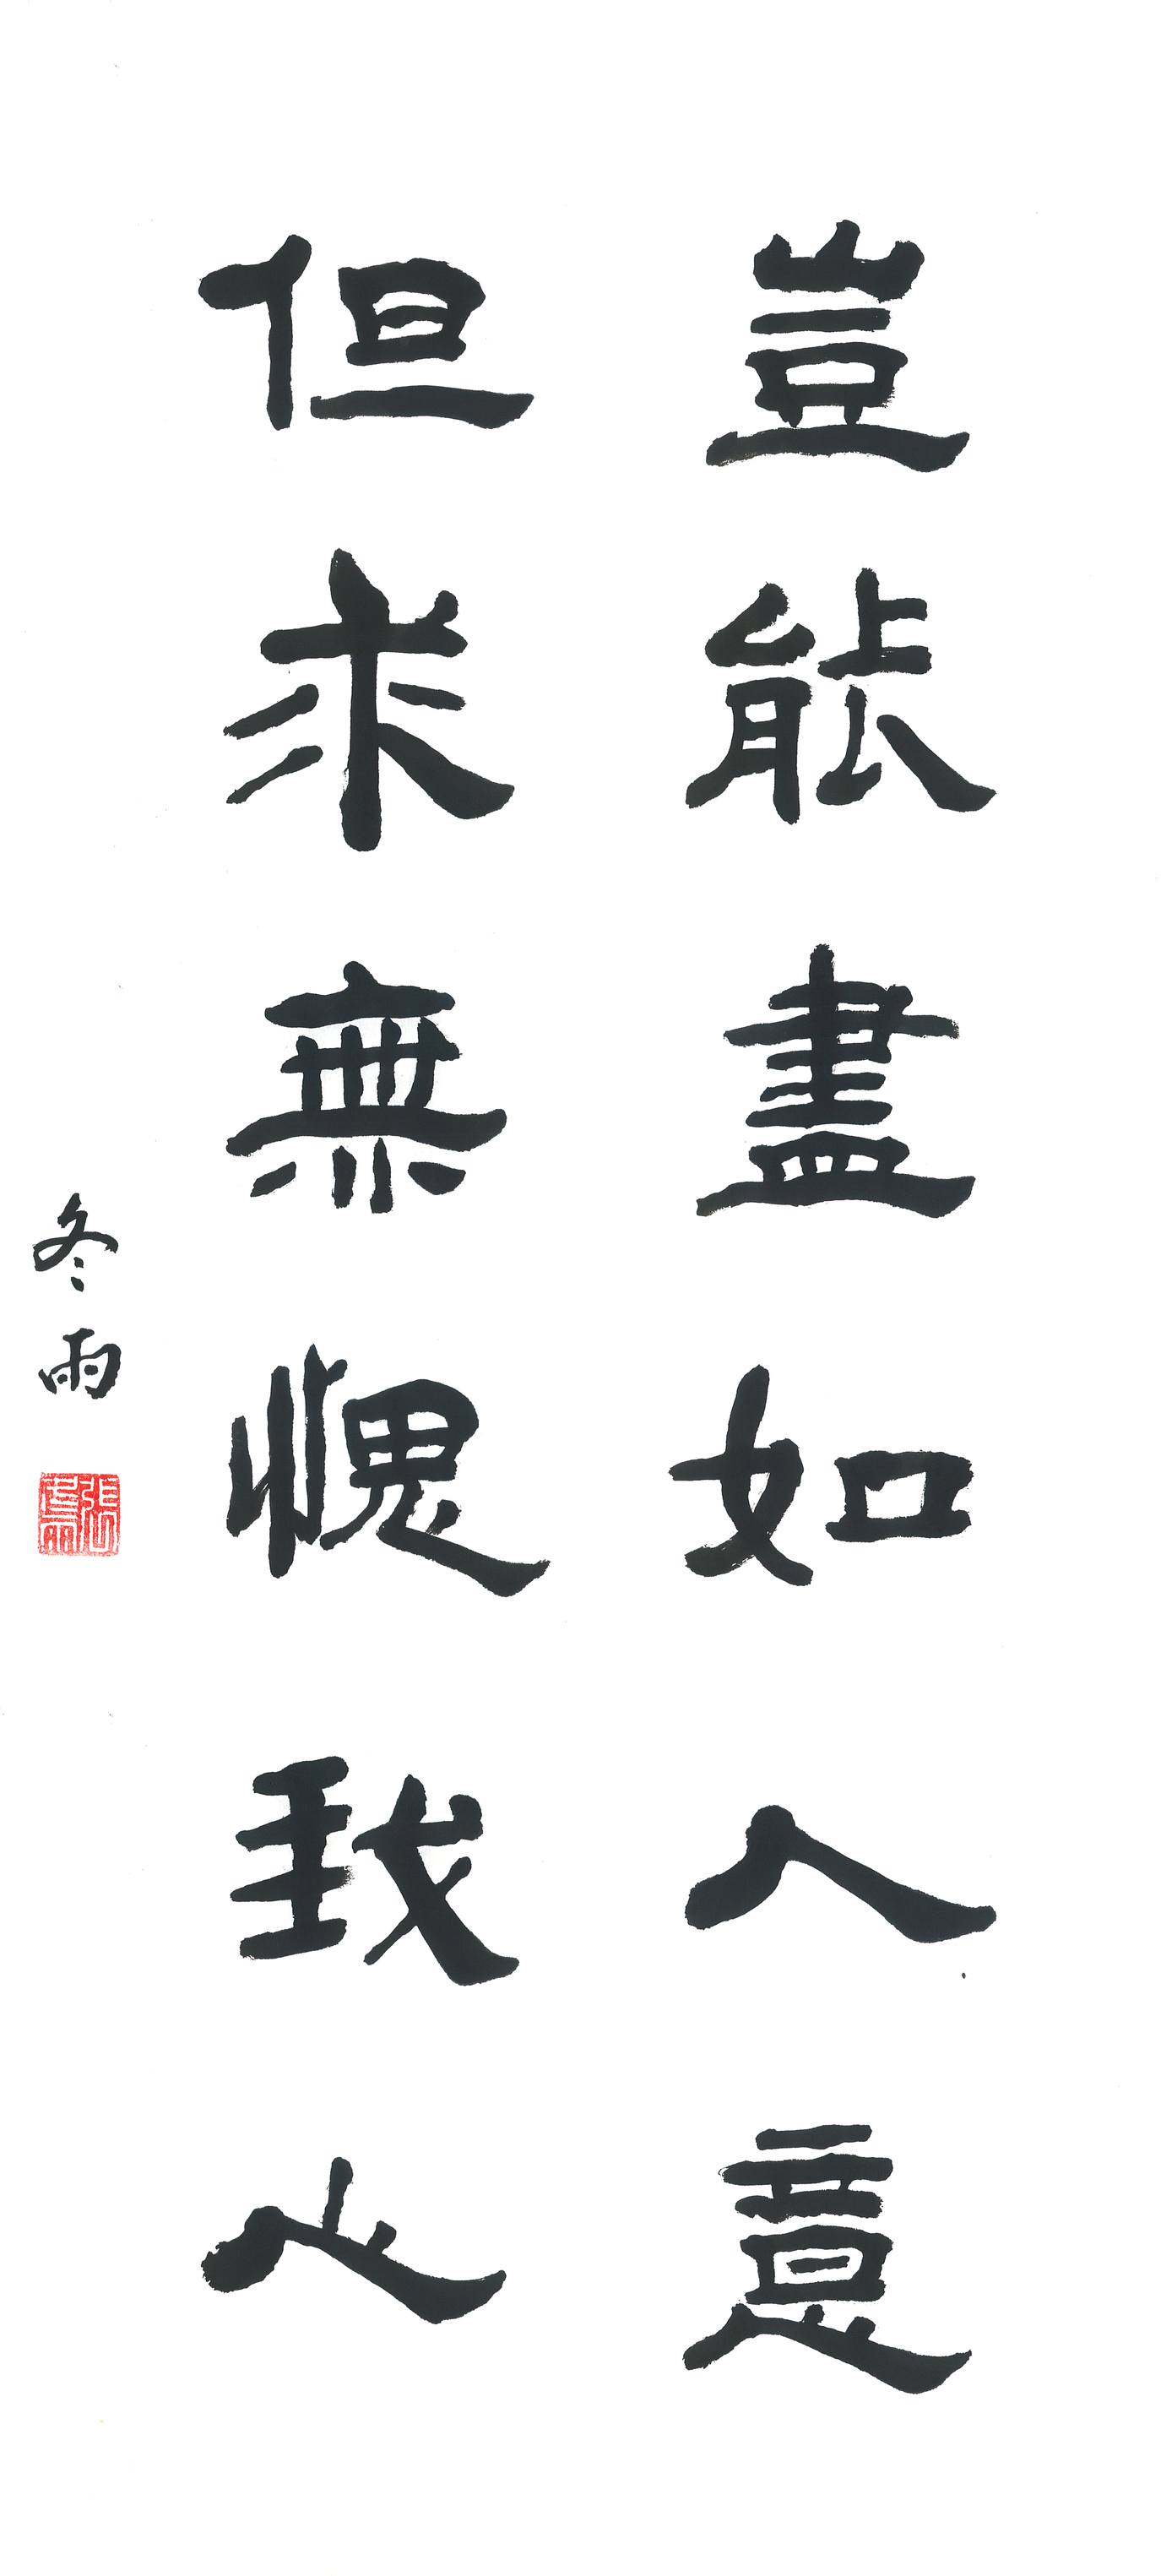 豈能盡如人意
但求無愧我心
冬雨